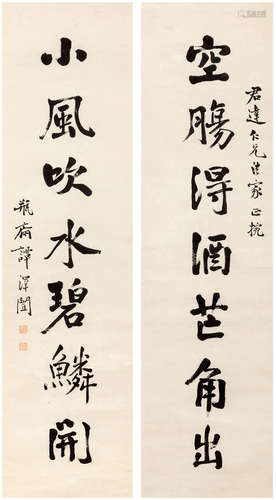 君達仁兄法家正捥
空腸得酒芒角出
小風吹水碧鱗開
瓶齋譚澤闓